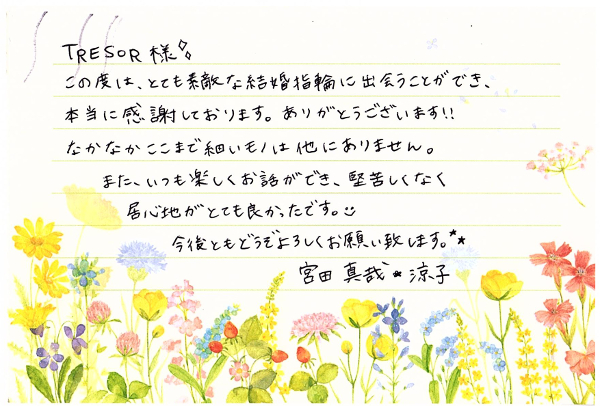 TRESOR 様
この度は、とても素敵な結婚指輪に出会うことができ、
本当に感謝しております。ありがとうございます!!
なかなかここまで細いモノは他にありません。
また、いつも楽しくお話ができ、堅苦しくなく
居心地がとても良かったです。
今後ともどうぞよろしくお願い致します。**
宮田 真哉 * 涼子